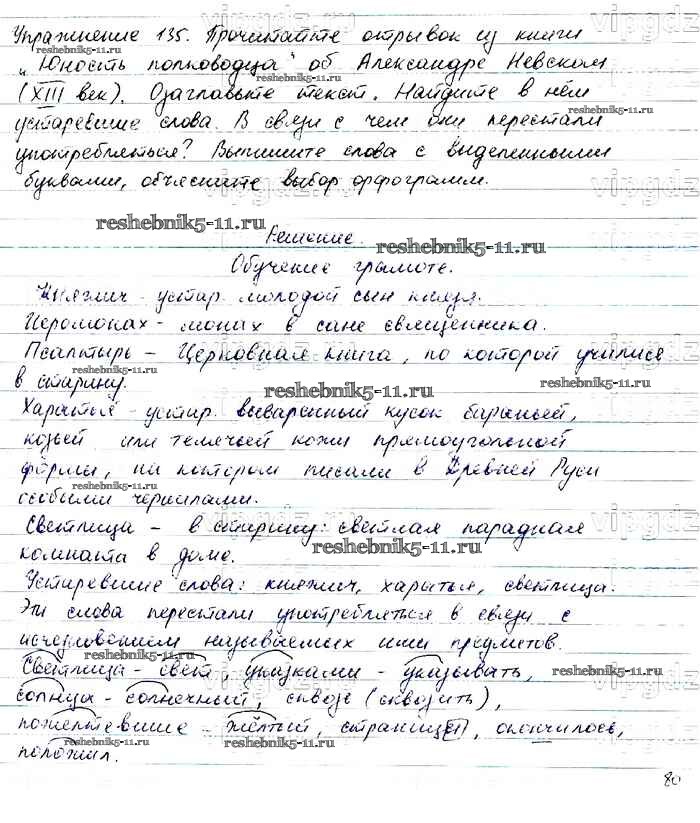 Упражнение 135. Прочитайте отрывок из книги
„Юность полководца" об Александре Невском
(XIII век). Озаглавьте текст. Найдите в нём
устаревшие слова. В связи с чем они перестали
употребляться? Выпишите слова с выделенными
буквами, объясните выбор орфограмм.
reshebnik5-11.ru
Решение.
Обучение грамоте.
Княжич - устар. молодой сын князя.
Иеромонах - монах в сане священника.
Псалтырь - Церковная книга, по которой учились
в старину.
Харатья - устар. вываренный кусок бараньей,
козьей или телячьей кожи прямоугольной
формы, на котором писали в Древней Руси
особыми чернилами.
Светлица - в старину: светлая парадная
комната в доме.
Устаревшие слова: княжич, харатья, светлица.
Эти слова перестали употребляться в связи с
исчезновением называемых ими предметов.
Светлица - свет, указками - указывать,
солнца - солнечный, сквозь (сквозить),
пожелтевшие - жёлтый, страницы, окончилось,
положил.
80